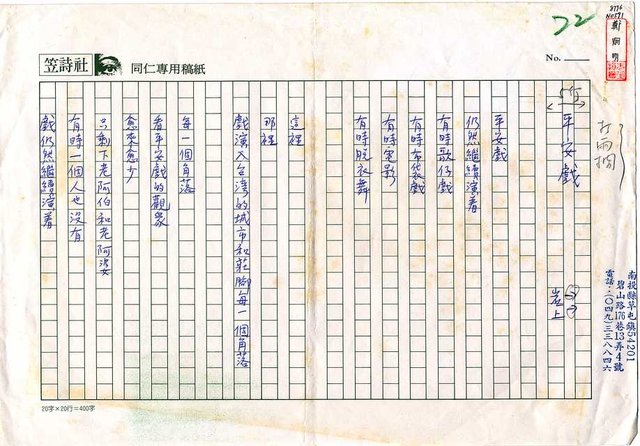 22
8776
No571
笠詩社
同仁專用稿紙
No.
鄭烱明
打兩摺
平安戲
岩上
平安戲
仍然繼續演着
有時歌仔戲
有時布袋戲
有時電影
有時脫衣舞
這裡
那裡
戲演入台灣的城市和莊腳每一個角落
每一個角落
看平安戲的觀眾
愈來愈少
只剩下老阿伯和老阿婆
有時一個人也沒有
戲仍然繼續演着
南投縣草屯鎮54201
碧山路176巷13弄4號
電話：(〇四九)三三八八四六
20字×20行=400字